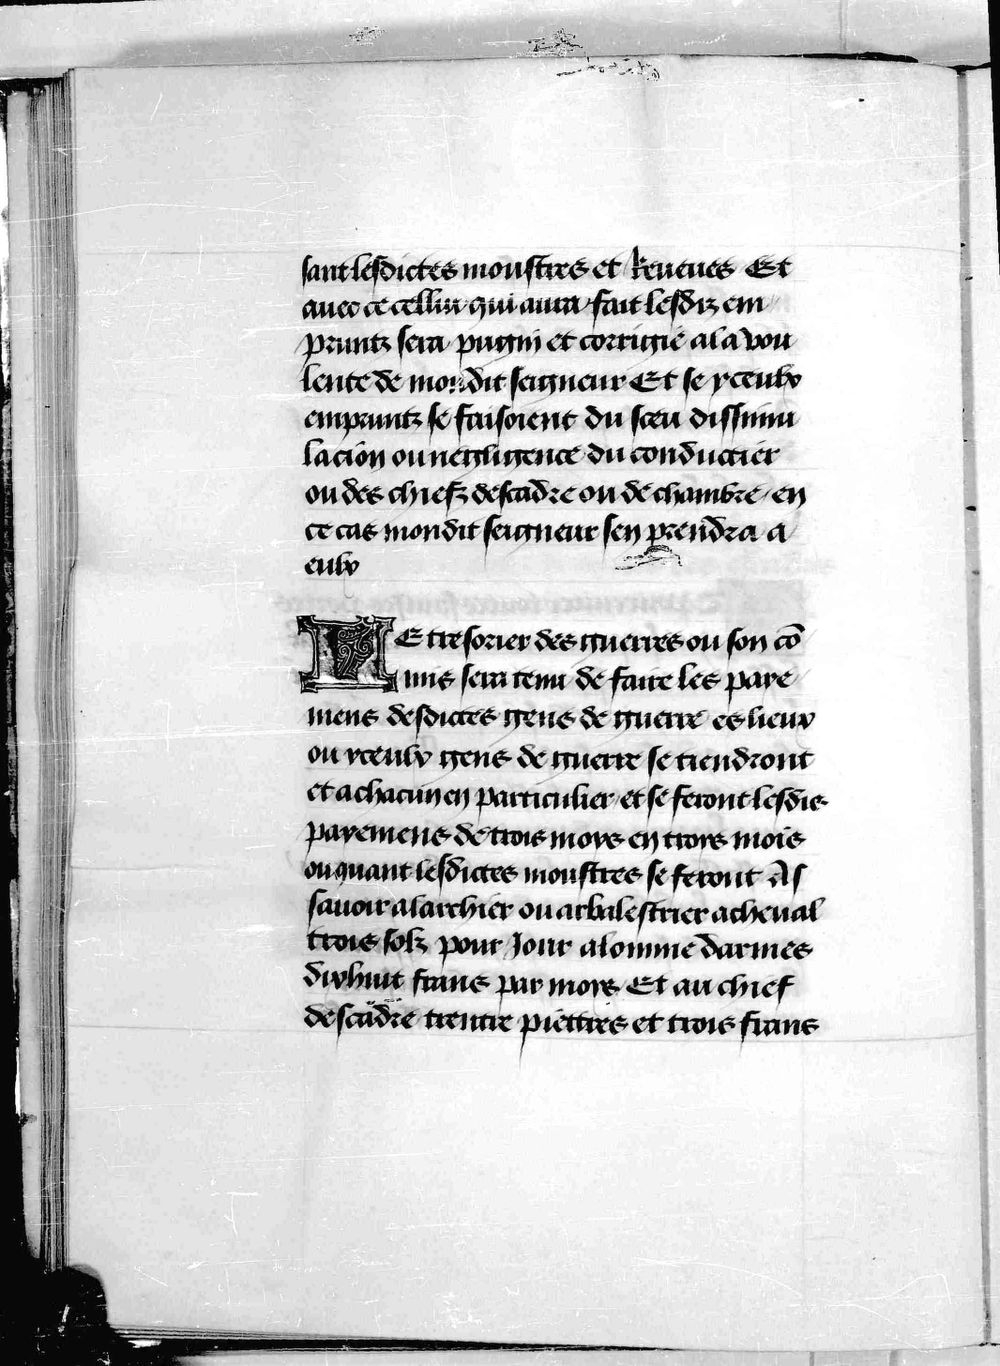 sant lesdictes monstres et Reueues Et
auec ce cellui qui aura fait lesdiz em
pruntz sera pugny et corrigie a la vou
lente de mondit seigneur Et se yceulx
empruntz se faisoient du sceu dissimu
lacion ou negligence du conductier
ou des chiefz descadre ou de chambre en
ce cas mondit seigneur sen prendra a
eulx
LE tresorier des guerres ou son cō
mis sera tenu de faire les paye
mens desdictes gens de guerre es lieux
ou yceulx gens de guerre se tiendront
et a chacun en particulier et se feront lesdis
payemens de trois moys en troys mois
ou quant lesdictes monstres se feront Ass
sauoir a larchier ou arbalestrier a cheual
trois solz pour Jour a lomme darmes
dixhuit frans par moys Et au chief
descadre trentre piettres et trois frans